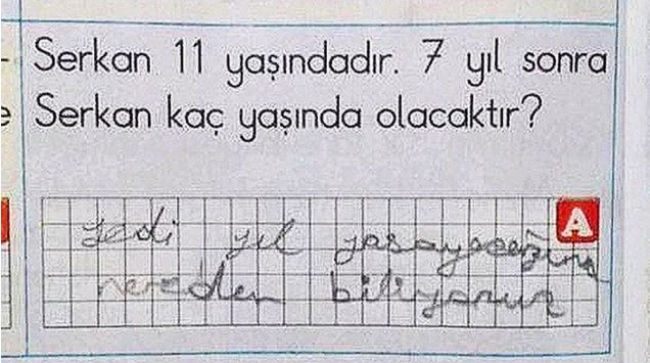 Serkan 11 yaşındadır. 7 yıl sonra
e Serkan kaç yaşında olacaktır?
A
yedi yıl yaşayacağını
nereden biliyoruz